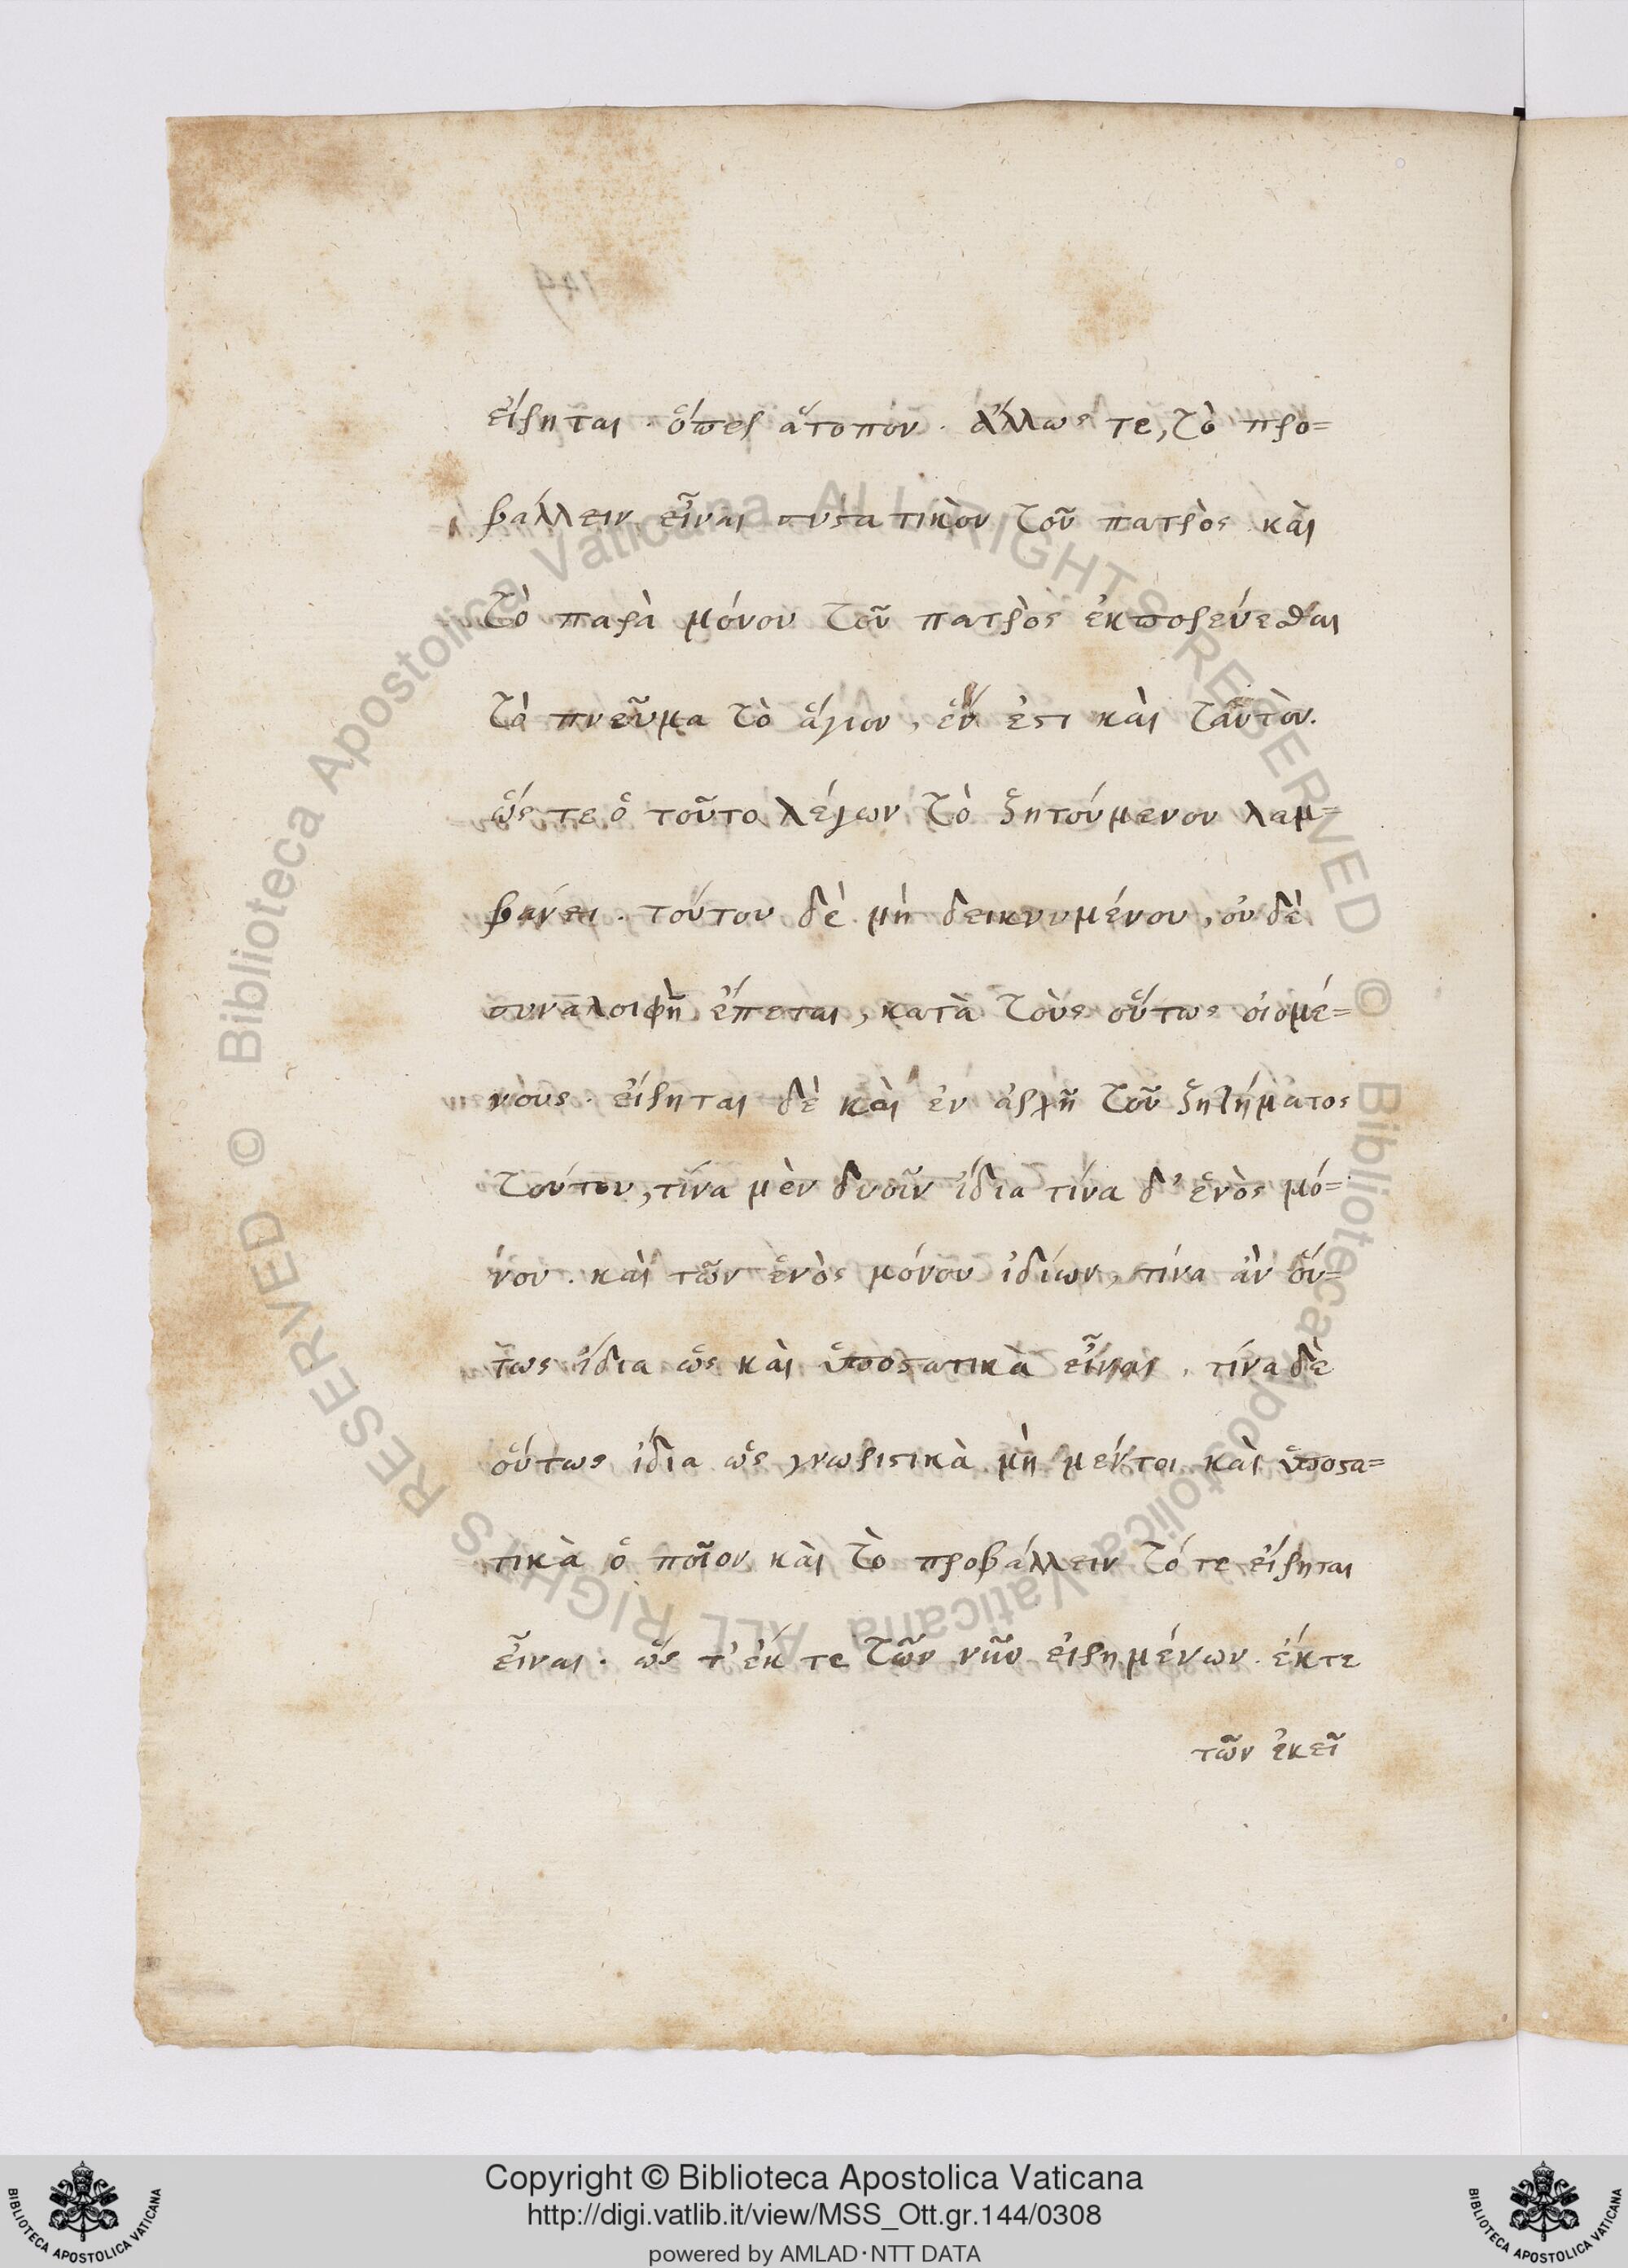 εἴρηται. ὅπερ ἄτοπον. ἄλλως τε, τὸ προ=
βάλλειν εἶναι συστατικὸν τοῦ πατρὸς καὶ
τὸ παρὰ μόνου τοῦ πατρὸς ἐκπορεύεσθαι
τὸ πνεῦμα τὸ ἅγιον, ἕν ἐστι καὶ ταὐτὸν.
ὥς τε ὁ τοῦτο λέγων τὸ ζητούμενον λαμ=
βάνει. τούτου δὲ μὴ δεικνυμένου, οὐ δὲ
συναλοιφὴ ἕπεται, κατὰ τοὺς οὕτως οἰομέ=
νους. εἴρηται δὲ καὶ ἐν ἀρχῇ τοῦ ζητήματος
τούτου, τίνα μὲν δυοῖν ἴδια τίνα δ' ἑνὸς μό=
νου. καὶ τῶν ἑνὸς μόνου ἰδίων, τίνα ἂν οὕ=
τως ἴδια ὡς καὶ ὑποστατικὰ εἶναι. τίνα δὲ
οὕτως ἴδια ὡς γνωριστικὰ μὴ μέντοι καὶ ὑποστα=
τικὰ ὁ ποῖον καὶ τὸ προβάλλειν τό τε εἴρηται
εἶναι. ὥς τ' ἐκ τε τῶν νῦν εἰρημένων. ἔκ τε
τῶν ἐκεῖ
Copyright © Biblioteca Apostolica Vaticana
http://digi.vatlib.it/view/MSS_Ott.gr.144/0308
powered by AMLAD·NTT DATA
BIBLIOTECA APOSTOLICA VATICANA
BIBLIOTECA APOSTOLICA VATICANA
© Biblioteca Apostolica Vaticana ALL RIGHTS RESERVED
© Biblioteca Apostolica Vaticana ALL RIGHTS RESERVED